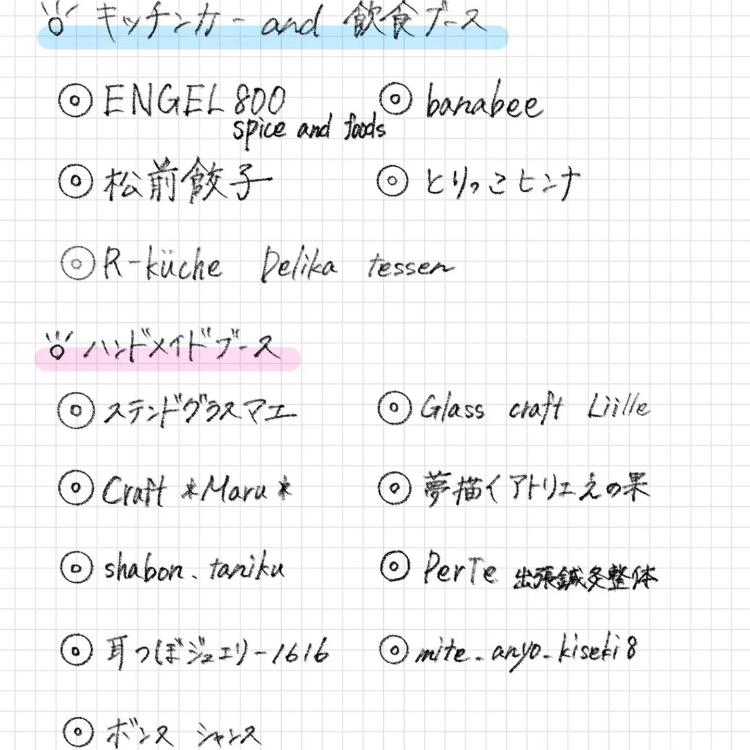 キッチンカー and 飲食ブース
◎ ENGEL 800 spice and foods
◎ banabee
◎ 松前餃子
◎ とりっこヒンナ
◎ R-küche Delika tessen
ハンドメイドブース
◎ ステンドグラスマエ
◎ Glass craft Liille
◎ Craft *Maru*
◎ 夢描くアトリエえの果
◎ shabon.taniku
◎ PerTe 出張鍼灸整体
◎ 耳つぼジュエリー1616
◎ mite_anyo_kiseki8
◎ ボンヌ シャンス